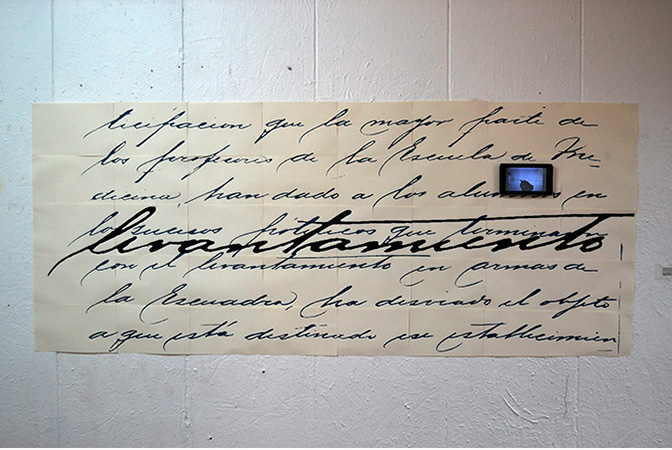 ticipacion que la mayor parte de
los profesores de la Escuela de Me-
dicina, han dado a los alumnos en
los sucesos politicos que terminaron
levantamiento
con el levantamiento en armas de
la Escuadra, ha desviado el objeto
a que está destinado ese establecimien